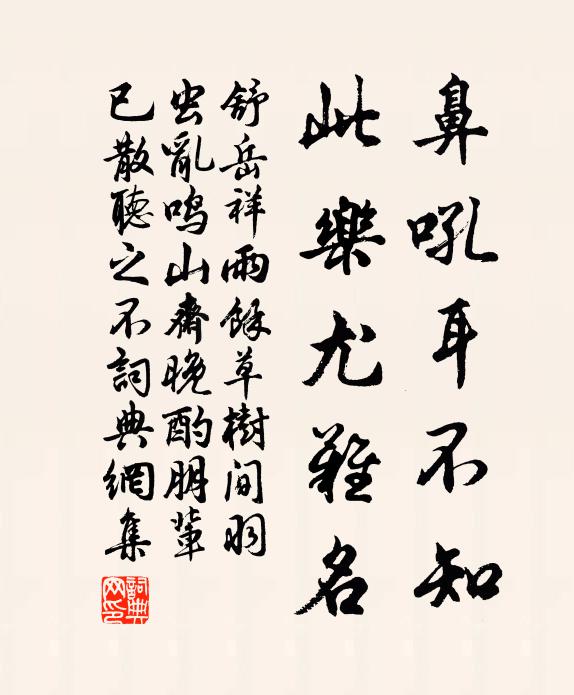 鼻吼耳不知
此樂尤難名
舒岳祥雨餘草樹间羽
虫亂鳴山齋晚酌朋輩
已散聽之不詞典網集
詞典
网印